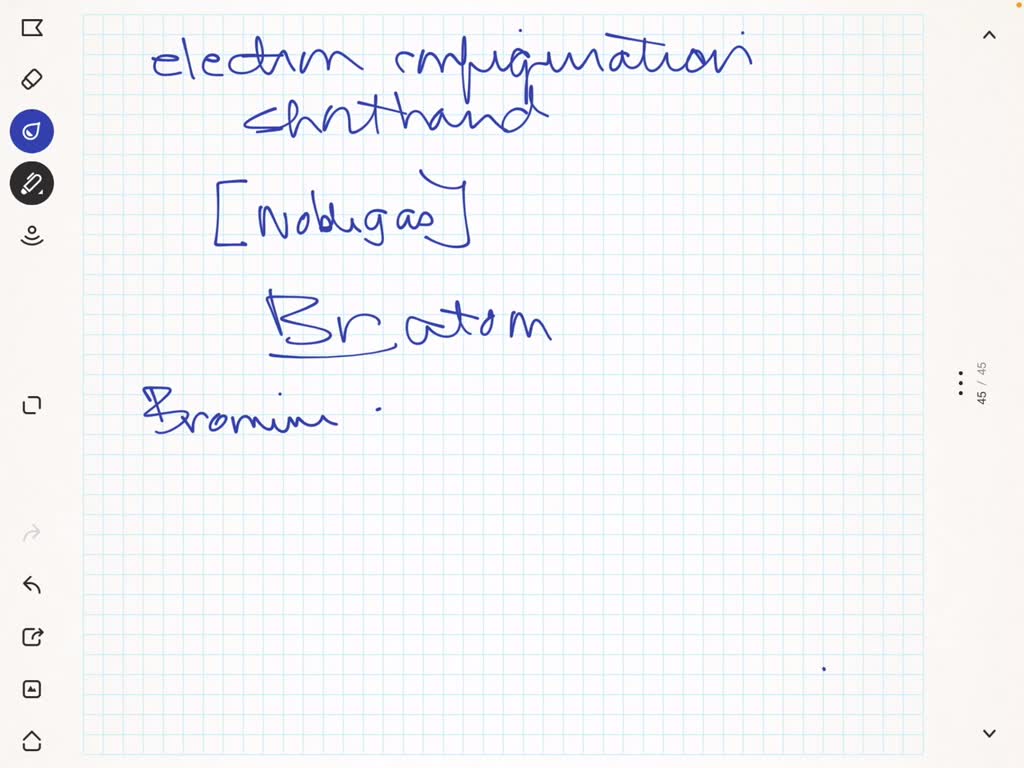 electron configuration
shorthand
[Noble gas]
Br atom
Bromine
45 / 45